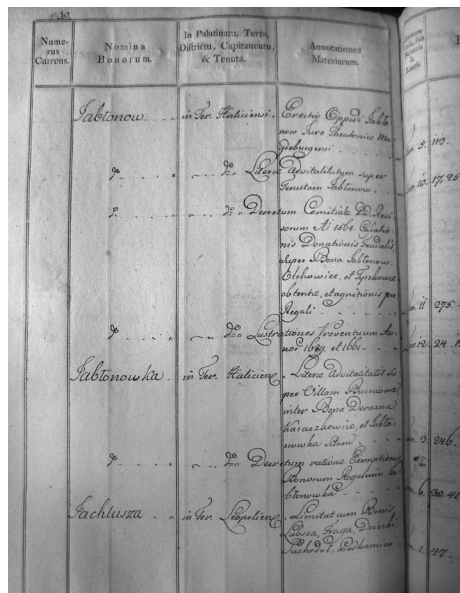 Nume-
rus
Currens.
Nomina
Bonorum.
In Palatinatu, Terra,
Districtu, Capitaneatu,
& Tenuta.
Annotationes
Materiarum.
Jabłonow in Ter. Haliciensi. Erectio Oppidi Jabło
now Jure Theutonico Ma
gdeburgensi 9. 113.
do do Literæ Advitalitatum super
Tenutam Jabłonow. 10. 17, 25
do do Decretum Comitiale DD. Revi
sorum Ao 1564. Cassatio
nis Donationis Feudalis
super Bona Jabłonow,
Olchowiec, et Tyszkowce
obtentæ, et agnitionis pro
Regali 11. 275
do do Lustrationes Proventuum An
nor et 1661. 12. 24
Jabłonowka in Ter. Haliciens. Literæ Advitalitatis Su
per Villam
inter Bona Derazna
Karaczkowice, et Jabło-
nowka 3. 246.
do do Decretum ratione Exemptionis
Bonorum Regalium Ja
błonowka 6. 30. 41
Jachlusza in Ter. Leopoliens. Limitat cum Bonis
Lubsza, Fraga,
Suchodoł, 1. 47.